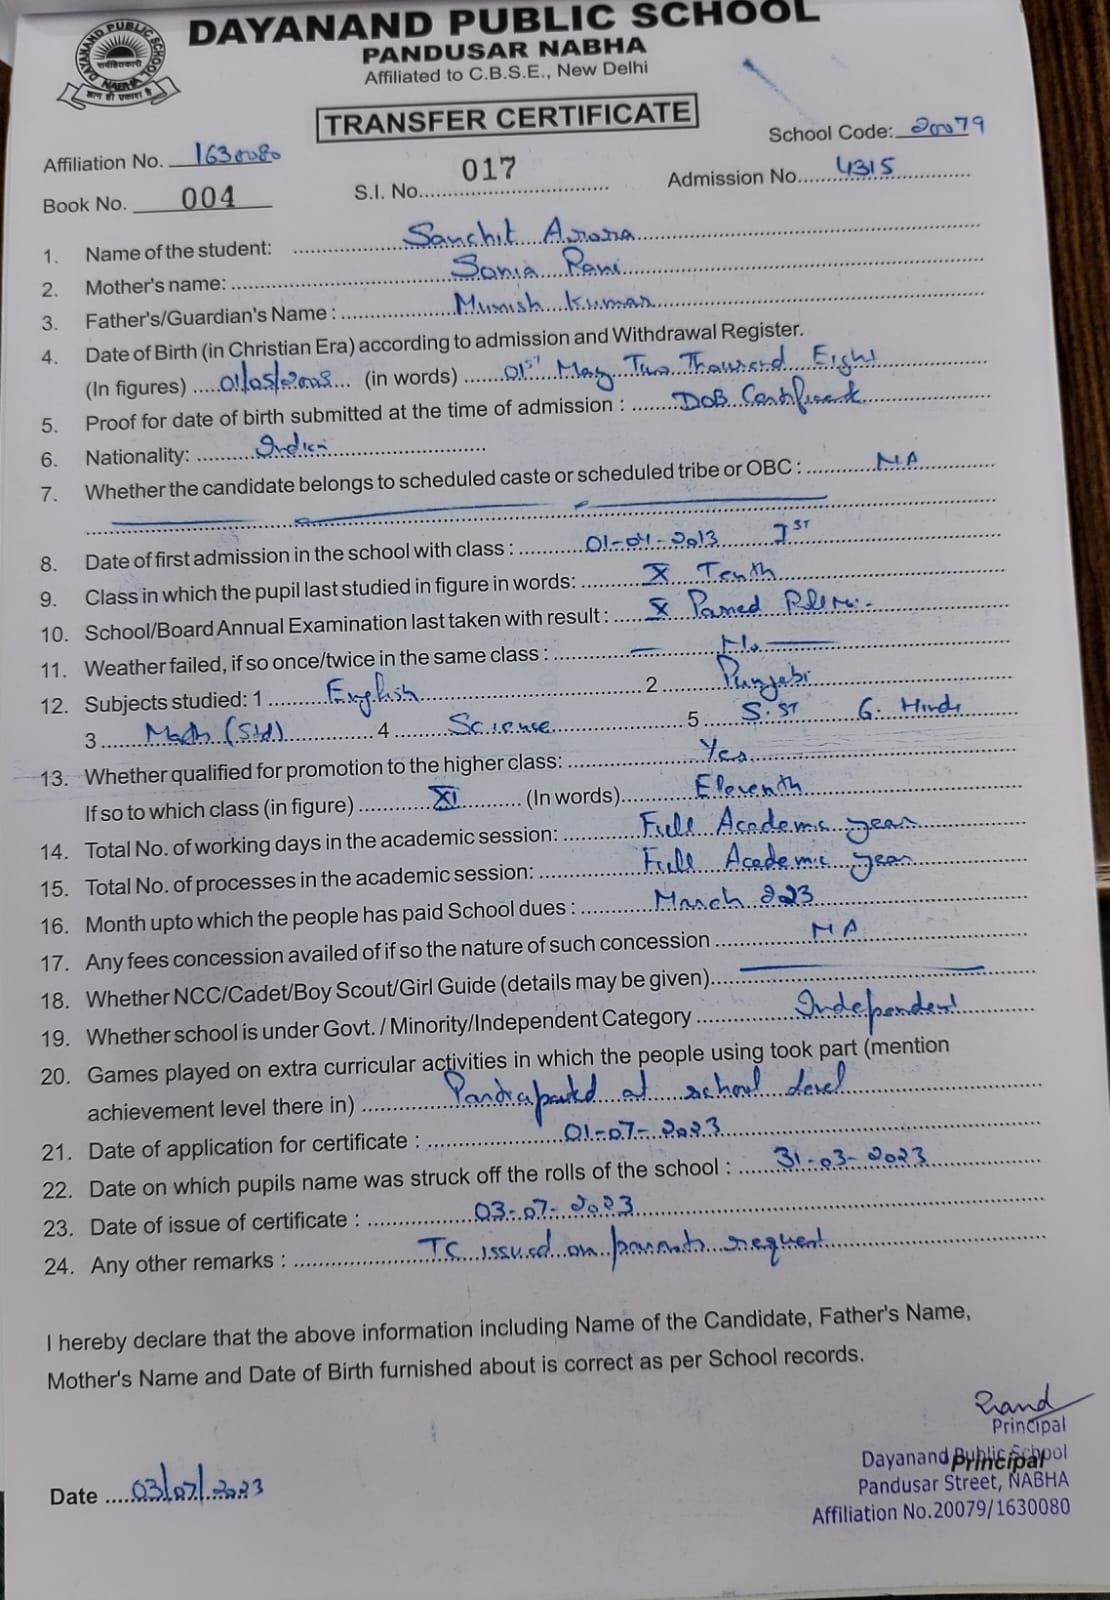 DAYANAND PUBLIC SCHOOL
PANDUSAR NABHA
Affiliated to C.B.S.E., New Delhi
DAYANAND PUBLIC SCHOOL
NABHA
TRANSFER CERTIFICATE
School Code: 20079
Affiliation No. 1630080
S.I. No. 017
Admission No. 4315
Book No. 004
1. Name of the student: Sanchit Arora
2. Mother's name: Sonia Rani
3. Father's/Guardian's Name : Munish Kumar
4. Date of Birth (in Christian Era) according to admission and Withdrawal Register.
(In figures) 01/05/2008 (in words) 01st May Two Thousand Eight
5. Proof for date of birth submitted at the time of admission : DOB Certificate
6. Nationality: Indian
7. Whether the candidate belongs to scheduled caste or scheduled tribe or OBC : NA
8. Date of first admission in the school with class : 01-04-2013 IST
9. Class in which the pupil last studied in figure in words: X Tenth
10. School/Board Annual Examination last taken with result : X Passed
11. Weather failed, if so once/twice in the same class : No
12. Subjects studied: 1 English 2 Punjabi
3 Math (Std) 4 Science 5 S.ST 6. Hindi
13. Whether qualified for promotion to the higher class: Yes
If so to which class (in figure) XI (In words) Eleventh
14. Total No. of working days in the academic session: Full Academic year
15. Total No. of processes in the academic session: Full Academic year
16. Month upto which the people has paid School dues : March 2023
17. Any fees concession availed of if so the nature of such concession NA
18. Whether NCC/Cadet/Boy Scout/Girl Guide (details may be given)
19. Whether school is under Govt. / Minority/Independent Category Independent
20. Games played on extra curricular activities in which the people using took part (mention
achievement level there in) Participated at school level
21. Date of application for certificate : 01-07-2023
22. Date on which pupils name was struck off the rolls of the school : 31-03-2023
23. Date of issue of certificate : 03-07-2023
24. Any other remarks : TC issued on parents request
I hereby declare that the above information including Name of the Candidate, Father's Name,
Mother's Name and Date of Birth furnished about is correct as per School records.
Principal
Dayanand Public School
Principal
Pandusar Street, NABHA
Affiliation No.20079/1630080
Date 03/07/2023